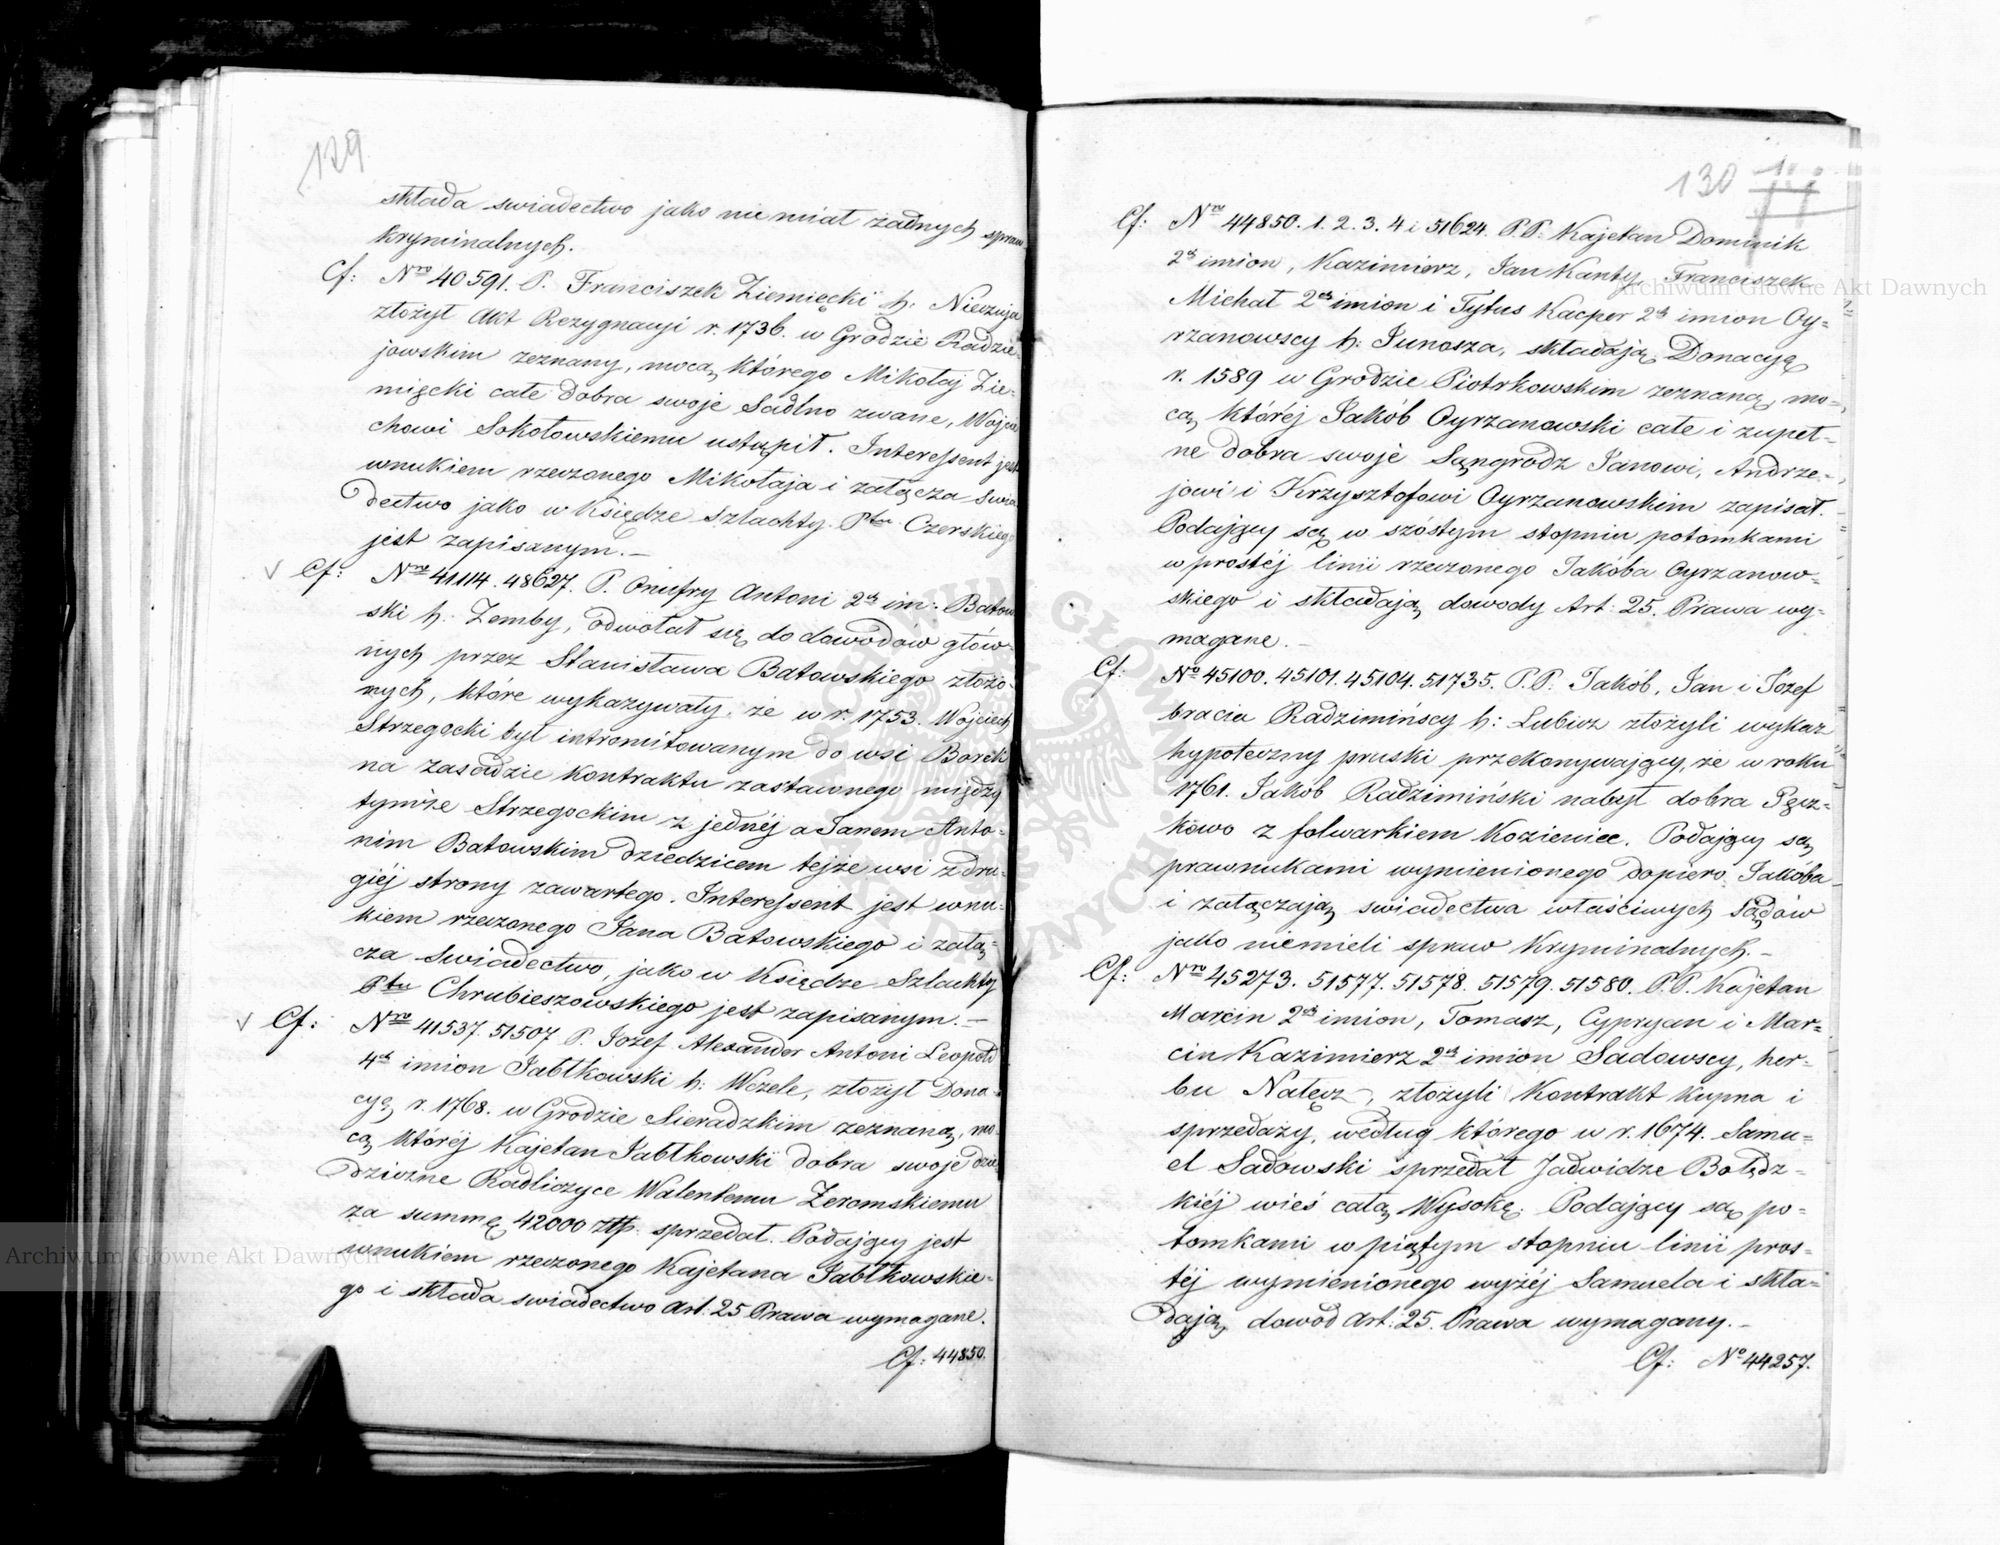 129
składa swiadectwo jako nie miał żadnych spraw
kryminalnych.
Cf: Nro 40591. P. Franciszek Ziemięcki h: Nieczuja
złożył Akt Rezygnacyi r. 1736. w Grodzie Radzie-
jowskim zeznany, mocą którego Mikołaj Zie-
mięcki całe dobra swoje Sadlno zwane, Wojcie
chowi Sokołowskiemu ustąpił. Interessent jest
wnukiem rzeczonego Mikołaja i załącza swia
dectwo jako w Księdze Szlachty Ptu Czerskiego
jest zapisanym. –
√ Cf: Nro 41114. 48627. P. Onufry Antoni 2ch im: Batow
ski h: Zemby, odwołał się do dowodów głów-
nych przez Stanisława Batowskiego złożo-
nych, które wykazywały, że w r. 1753. Wojciech
Strzegocki był intromitowanym do wsi Borek
na zasadzie kontraktu zastawnego między
tymże Strzegockim z jednéj a Janem Anto-
nim Batowskim dziedzicem tejże wsi z dru-
giéj strony zawartego. Interessent jest wnu-
kiem rzeczonego Jana Batowskiego i załą-
cza swiadectwo, jako w Księdze Szlachty
Ptu Chrubieszowskiego jest zapisanym. –
√ Cf: Nro 41537. 51507 P. Jozef Alexander Antoni Leopold
4ch imion Jabłkowski h: Wczele, złożył Dona-
cyę r. 1768. w Grodzie Sieradzkim zeznaną, mo-
cą któréj Kajetan Jabłkowski dobra swoje dzie
dziczne Radliczyce Walentemu Żeromskiemu
za summę 42000 złtp. sprzedał. Podający jest
wnukiem rzeczonego Kajetana Jabłkowskie-
go i składa swiadectwo Art: 25 Prawa wymagane.
Cf: 44850.
130
Cf: Nro 44850. 1. 2. 3. 4 i 51624. P.P. Kajetan Dominik
2ch imion, Kazimierz, Jan Kanty, Franciszek
Michał 2ch imion i Tytus Kacper 2ch imion Oy-
rzanowscy h: Junosza, składają Donacyą
r. 1589 w Grodzie Piotrkowskim zeznaną, mo-
cą któréj Jakób Oyrzanowski całe i zupeł-
ne dobra swoje Sangrodz Janowi, Andrze-
jowi i Krzysztofowi Oyrzanowskim zapisał.
Podający są w szóstym stopniu potomkami
w prostéj linii rzeczonego Jakóba Oyrzanow-
skiego i składają dowody Art: 25. Prawa wy-
magane. –
Cf: No 45100. 45101. 45104. 51735. P.P. Jakób, Jan i Józef
bracia Radzimińscy h: Lubicz złożyli wykaz
hypoteczny pruski przekonywający, że w roku
1761. Jakób Radzimiński nabył dobra Pącz-
kowo z folwarkiem Kozieniec. Podający są
prawnukami wymienionego dopiero Jakóba
i załączają swiadectwa właściwych Sądów
jako niemieli spraw kryminalnych. –
Cf: Nro 45273. 51577. 51578. 51579. 51580. P.P. Kajetan
Marcin 2ch imion, Tomasz, Cypryan i Mar-
cin Kazimierz 2ch imion Sadowscy, her-
bu Nałęcz, złożyli Kontrakt kupna i
sprzedaży, według którego w r. 1674. Samu-
el Sadowski sprzedał Jadwidze Bołędz-
kiéj wieś całą Wysokę. Podający są po-
tomkami w piątym stopniu linii pros-
téj wymienionego wyżéj Samuela i skła-
dają dowód Art: 25. Prawa wymagany. –
Cf: No 44257.
Archiwum Główne Akt Dawnych
Archiwum Główne Akt Dawnych